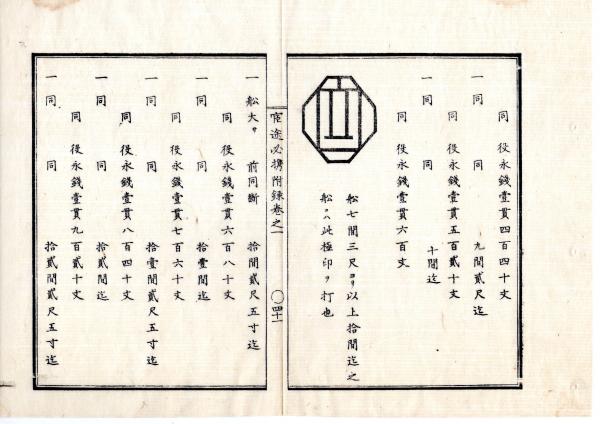 同　役永錢壹貫四百四十文
一　同　　同　　九間貳尺迄
同　役永錢壹貫五百貳十文
一　同　　同　　十間迄
同　役永錢壹貫六百文
船七間三尺ヨリ以上拾間迄之
船ハ此極印ヲ打也
宦途必携附録卷之一
〇四十一
一　船大サ　前同斷　拾間貳尺五寸迄
同　役永錢壹貫六百八十文
一　同　　同　　拾壹間迄
同　役永錢壹貫七百六十文
一　同　　同　　拾壹間貳尺五寸迄
同　役永錢壹貫八百四十文
一　同　　同　　拾貳間迄
同　役永錢壹貫九百貳十文
一　同　　同　　拾貳間貳尺五寸迄